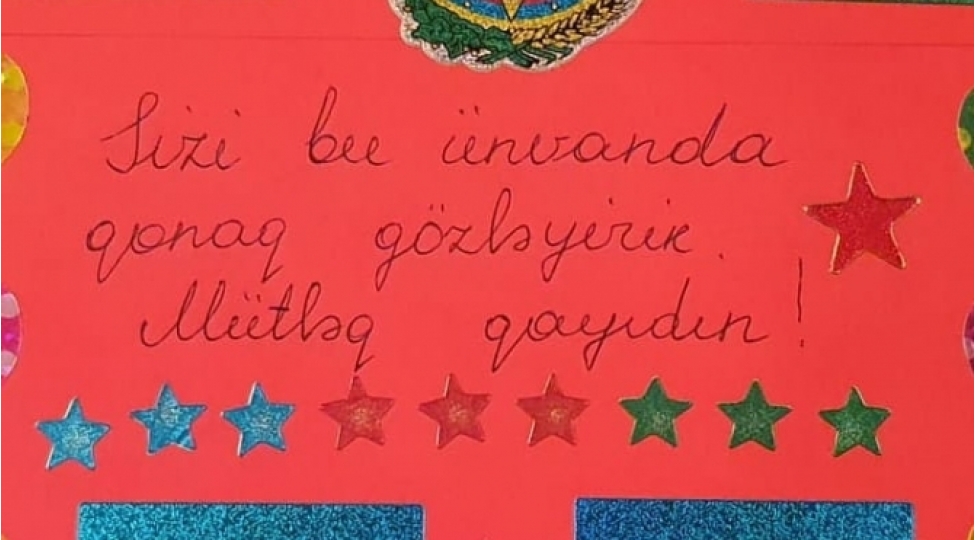 Sizi bu ünvanda
qonaq gözləyirik.
Mütləq qayıdın!